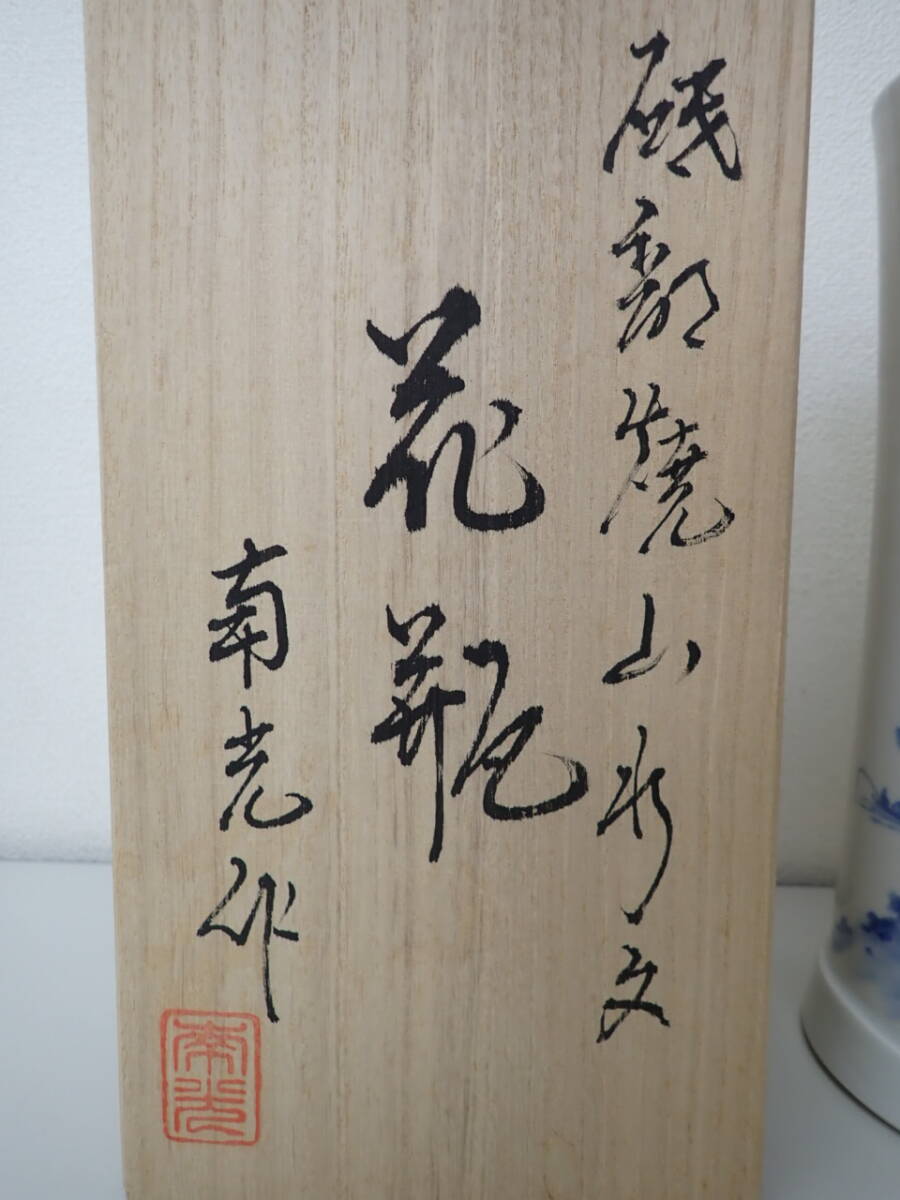 砥部焼山水文
花瓶
南光作
南光